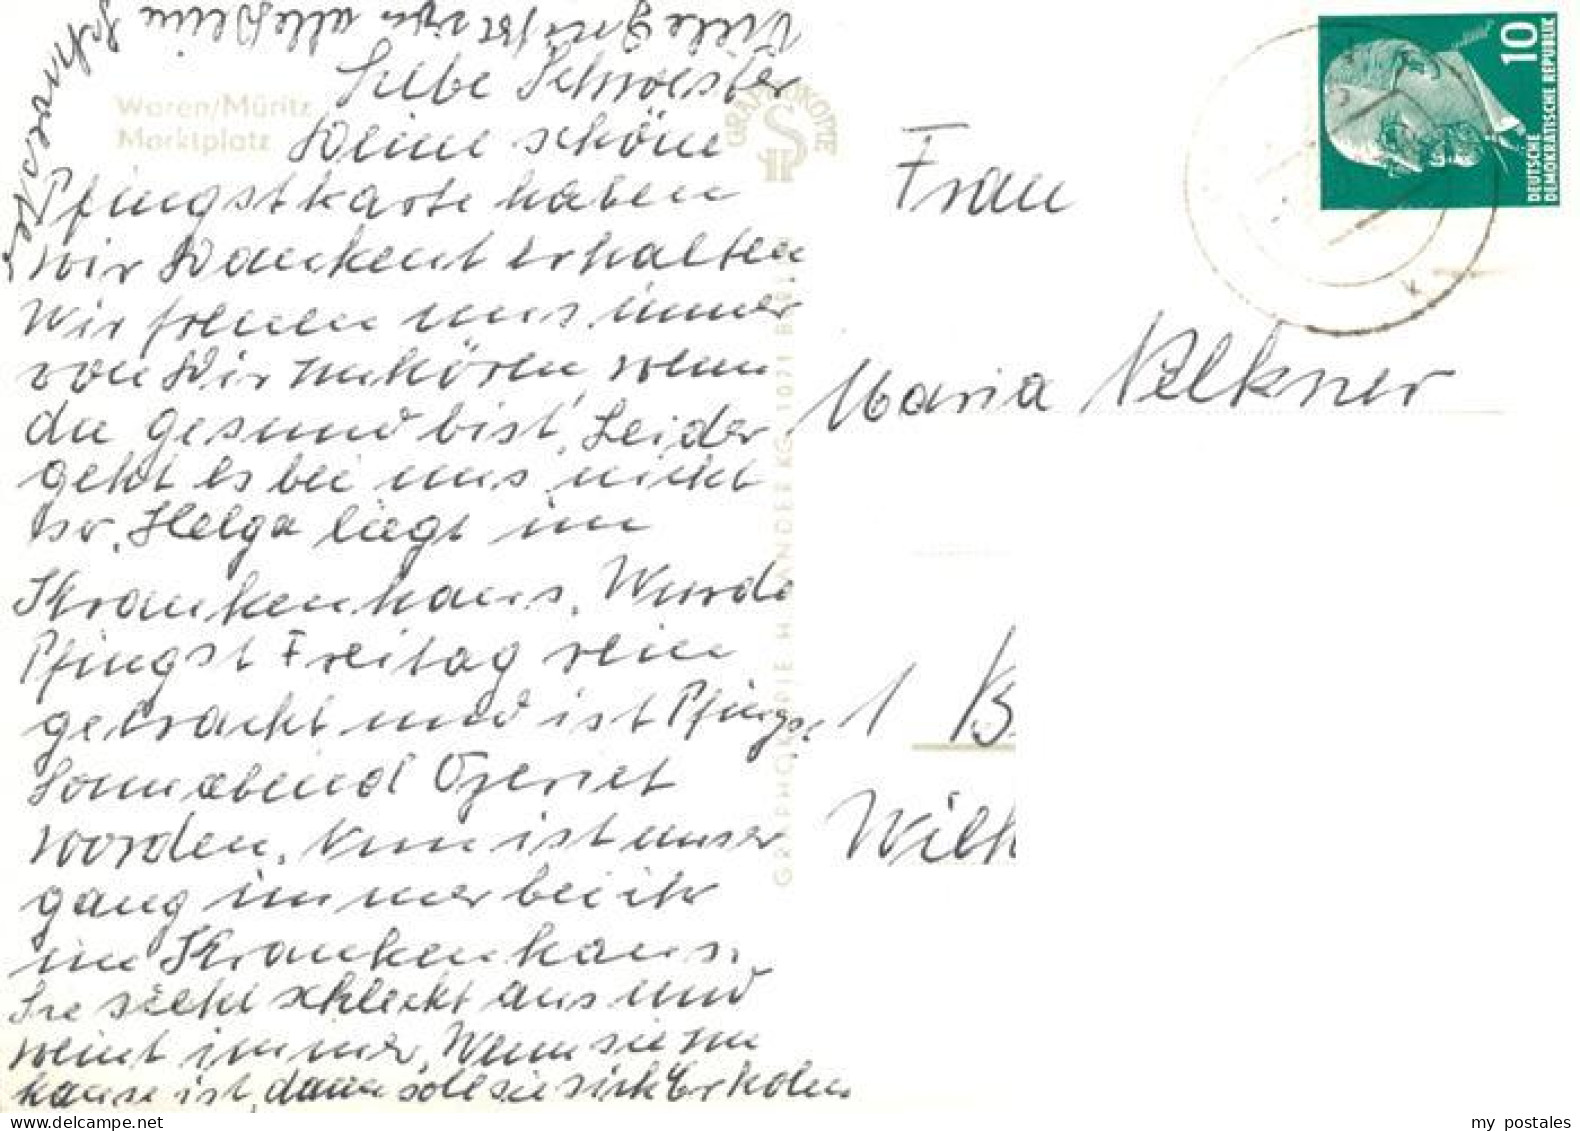 Waren/Müritz
Marktplatz
Liebe Schwester
Deine schöne
Pfingstkarte haben
wir Dankent erhalten
Wir freuen uns immer
von Dir zuhören, wenn
du gesund bist, Leider
geht es bei uns nicht
so. Helga liegt im
Krankenhaus. Wurde
Pfingst Freitag rein
gebracht und ist Pfings.
Sonnabend Operiet
worden. Nun ist unser
gang immer bei ihr
im Krankenhaus.
Sie sieht schleckt aus und
weint immer. Wenn sie zu
hause ist, dann soll sie sich Erkolen
Viele Grüße von alle Deine
Schwester
GRAPHOKOPIE H. SANDER KG 1071 BERLIN
GRAPHOKOTTE
10
DEUTSCHE
DEMOKRATISCHE REPUBLIK
Frau
Maria
1 B
Wilh
my postales